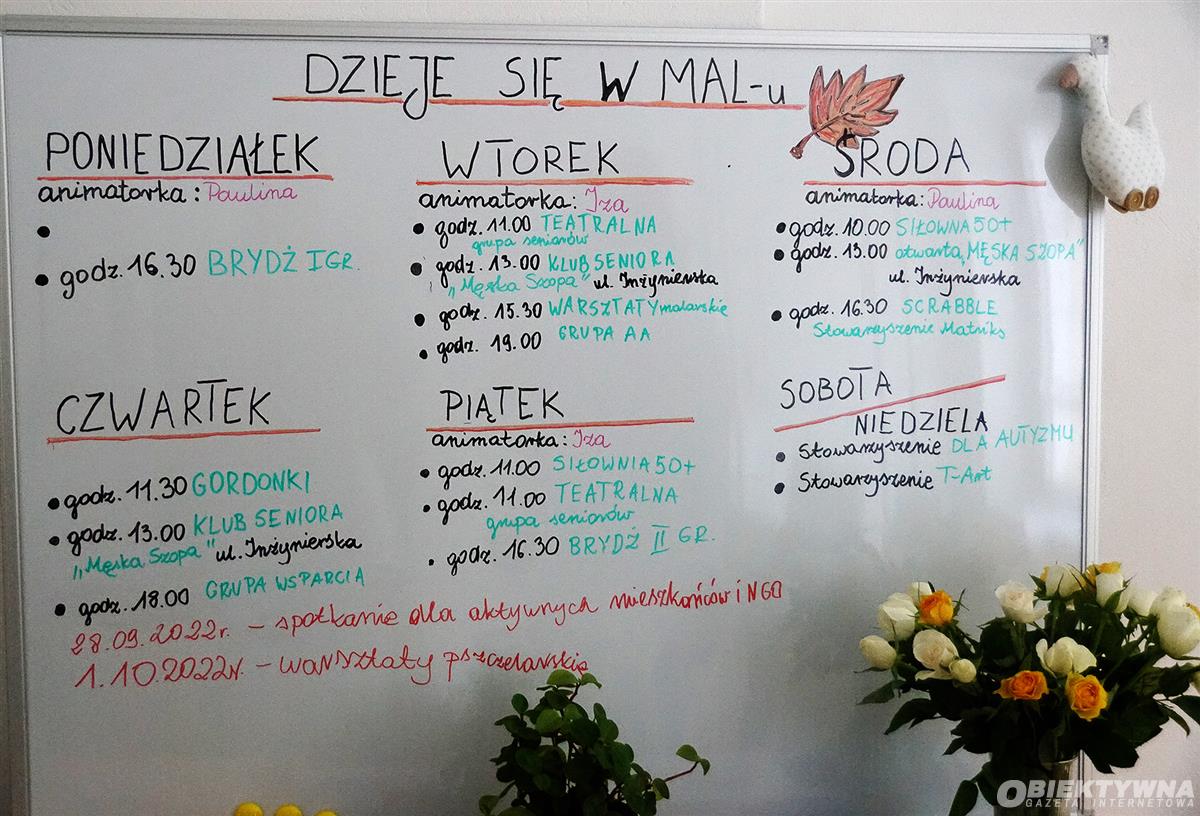 DZIEJE SIĘ W MAL-u
PONIEDZIAŁEK
animatorka: Paulina
godz. 16.30 BRYDŻ I GR.
WTOREK
animatorka: Iza
godz. 11.00 TEATRALNA
grupa seniorów
godz. 13.00 KLUB SENIORA
"Męska Szopa" ul. Inżynierska
godz. 15.30 WARSZTATY malarskie
godz. 19.00 GRUPA AA
ŚRODA
animatorka: Paulina
godz. 10.00 SIŁOWNA 50+
godz. 13.00 otwarta „MĘSKA SZOPA"
ul. Inżynierska
godz. 16.30 SCRABBLE
Stowarzyszenie Matniks
CZWARTEK
godz. 11.30 GORDONKI
godz. 13.00 KLUB SENIORA
"Męska Szopa" ul. Inżynierska
godz. 18.00 GRUPA WSPARCIA
PIĄTEK
animatorka: Iza
godz. 11.00 SIŁOWNIA 50+
godz. 11.00 TEATRALNA
grupa seniorów
godz. 16.30 BRYDŻ II GR.
SOBOTA
NIEDZIELA
Stowarzyszenie DLA AUTYZMU
Stowarzyszenie T-Art
28.09.2022r. – spotkanie dla aktywnych mieszkańców i NGO
1.10.2022r. – warsztaty pszczelarskie
OBIEKTYWNA
GAZETA INTERNETOWA